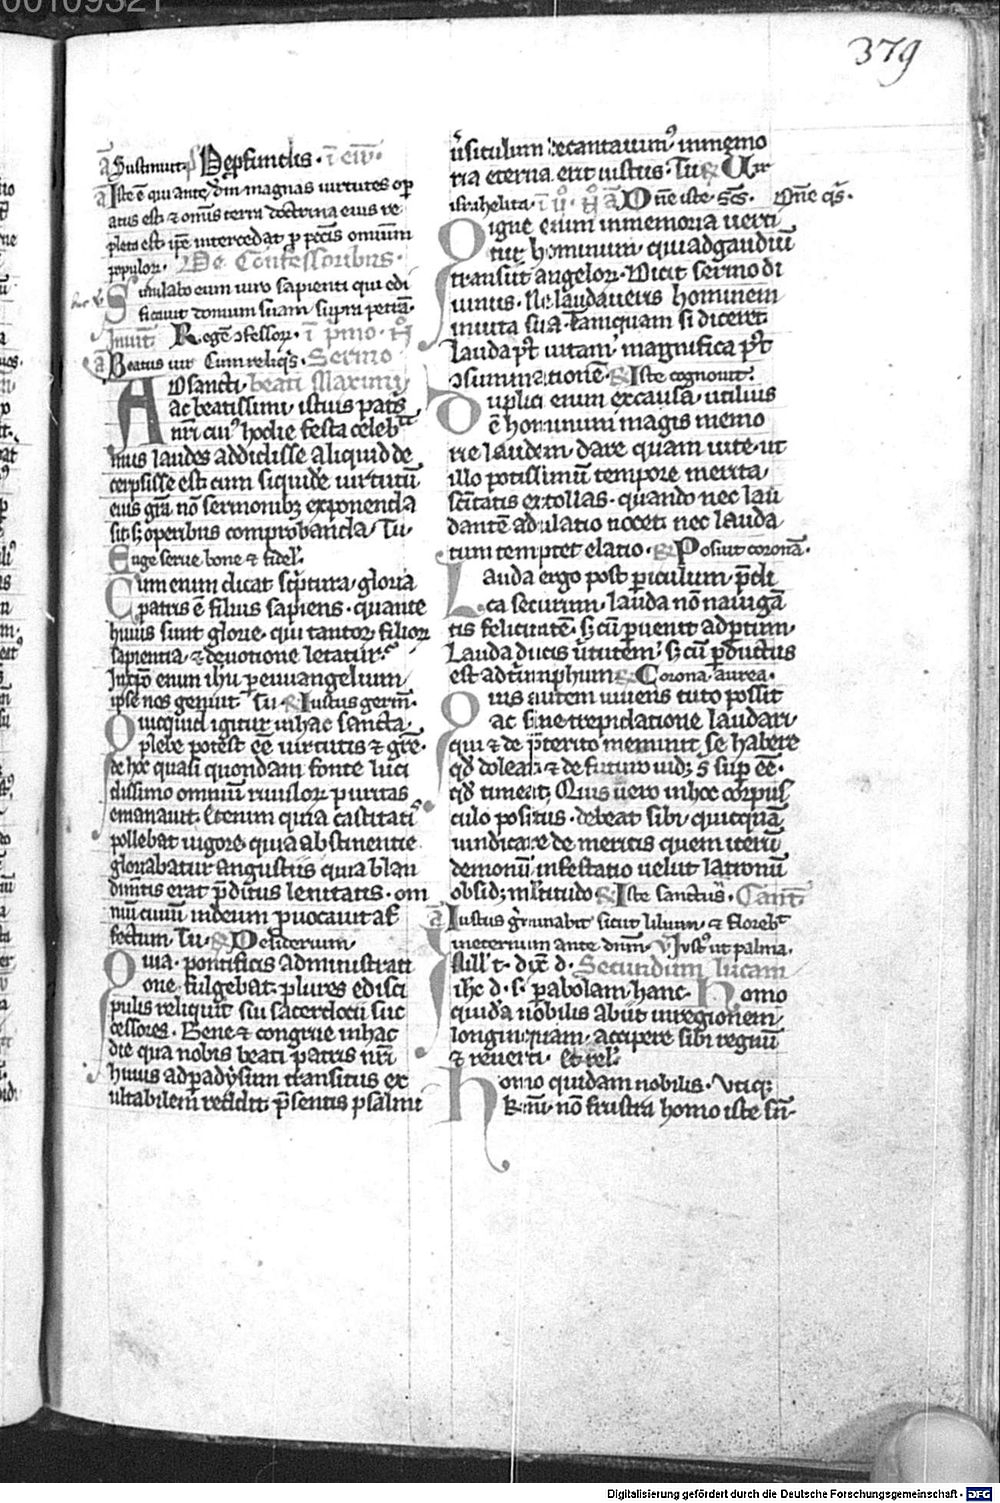 00109321
379
a Sustinuit ps Dep̄functis · i euu̅·
a Iste ē qui ante dm̄ magnas uirtutes op
atus est ⁊ om̄is terra doctrina eius re
pleta est ip̄e intercedat p̱ pcc̄is omnium
populoꝝ · De Confessoribus·
Simulabo eum uiro sapienti qui edi
ficauit domum suam supra petrā·
Inuit̄ Regē ↄfessoꝝ · i pͥmo · n̄
a Beatus uir Cum reliqͥs · Sermo
AD sancti · beati Maximi
ac beatissimi · istius patͥs
nr̄i cuiꝰ hodie festa celebᵃ
mus laudes addidisse aliquid de
cerpsisse est cum siquidē uirtutū
eius gr̄a nō sermonibꝫ exponenda
sit · sꝫ operibus comprobanda · Tu·
Euge serue bone ⁊ fidel̓
Cum enim dicat scͥptura · gloria
patris ē filius sapiens · quante
huius sunt glorie · qui tantoꝝ filioꝝ
sapientia · ⁊ deuotione letatur·
In xp̄o enim ihū p̱ euuangelium
ipse nos genuit · Tu · ℟ Iustus germ̄·
Quicquid igitur in hac sancta
plebe potest eē uirtutis ⁊ grē·
de hoc quasi quondam fonte luci
dissimo omniū riuuloꝝ puritas
emanauit · Etenim quia castitatꝭ
pollebat uigore · quia abstinentie
gloriabatur angustiis quia blan
dimētis erat p̄ditus lenitatis · om
niū ciuiū in deum puocauit af
fectum · Tu · ℟ Desiderium
Quia · pontificis administrati
one fulgebat · plures e disci
pulis reliquit sui sacerdocii suc
cessores · Bene ⁊ congrue in hac
die qua nobis beati patris nr̄i
huius ad p̱adysum transitus ex
ultabilem reddit p̄sentis psalmi
u̓siculum decantauimꝰ in memo
ria eterna erit iustus · Tu ℟ Uir
israhelita · Dn̄e iste · scs̄· Dn̄e qͥs·
Digne enim in memoria uerti
tur hominum · qui ad gaudiū
transiit angeloꝝ · Dicit sermo di
uinus · Ne laudaueris hominem
in uita sua · Tamquam si diceret
Lauda p̓t uitam · magnifica p̓t
ↄsummationē · ℟ Iste cognouit·
Duplici enim ex causa · utilius
ē hominum magis memo
rie laudem · dare quam uite · ut
illo potissimū tempore merita
sc̄itatis extollas · quando nec lau
dantē adulatio mouet · nec lauda
tum temptet elatio · ℟ Posuit coronā·
Lauda ergo post p̱iculum · p̄di
ca securum · lauda nō nauigā
tis felicitatē · sꝫ cū p̱uenit ad portum·
Lauda ducis u̓tutem · sꝫ cū p̱ductus
est ad triumphum · ℟ Corona · aurea·
Quis autem uiuens tuto possit
ac sine trepidatione laudari·
qui ⁊ de p̄terito meminit se habere
qd̄ doleat · ⁊ de futuro uidꝫ s̓ sup̱ eē·
qd̄ timeat · Quis uero in hoc corpus
culo positus · debeat sibi quicquā
uindicare de meritis quem iterū
demonū infestatio uelut latronū
obsidꝫ m̄ltitudo ℟ Iste sanctus · Cant̄
a Iustus g̓minabit sicut lilium · ⁊ florebᵗ
in eternum ante dnm̄ · V̓ Iustꝰ ut palma·
In ill̓ t · dix̄ d · Secundum lucam
ihc d · s · p̱abolam hanc · Homo
quidā nobilis abiit in regionem
longinquam · accipere sibi regnū
⁊ reuerti · Et rel̓
Homo quidam nobilis · Utiqꝫ
k̄mi · nō frustra homo iste sū-
Digitalisierung gefördert durch die Deutsche Forschungsgemeinschaft - DFG